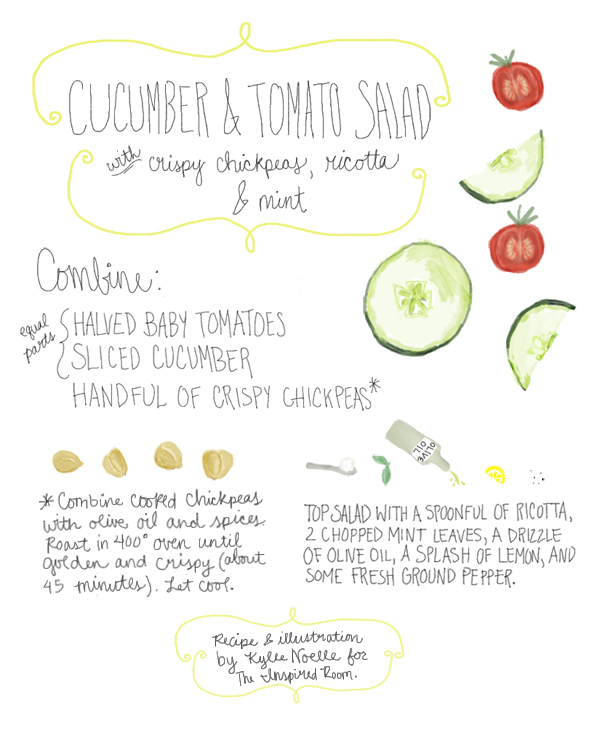 CUCUMBER & TOMATO SALAD
with crispy chickpeas, ricotta
& mint
Combine:
equal
parts
HALVED BABY TOMATOES
SLICED CUCUMBER
HANDFUL OF CRISPY CHICKPEAS*
OLIVE
OIL
* Combine cooked chickpeas
with olive oil and spices.
Roast in 400° oven until
golden and crispy (about
45 minutes). Let cool.
TOP SALAD WITH A SPOONFUL OF RICOTTA,
2 CHOPPED MINT LEAVES, A DRIZZLE
OF OLIVE OIL, A SPLASH OF LEMON, AND
SOME FRESH GROUND PEPPER.
Recipe & illustration
by Kylee Noelle for
The Inspired Room.